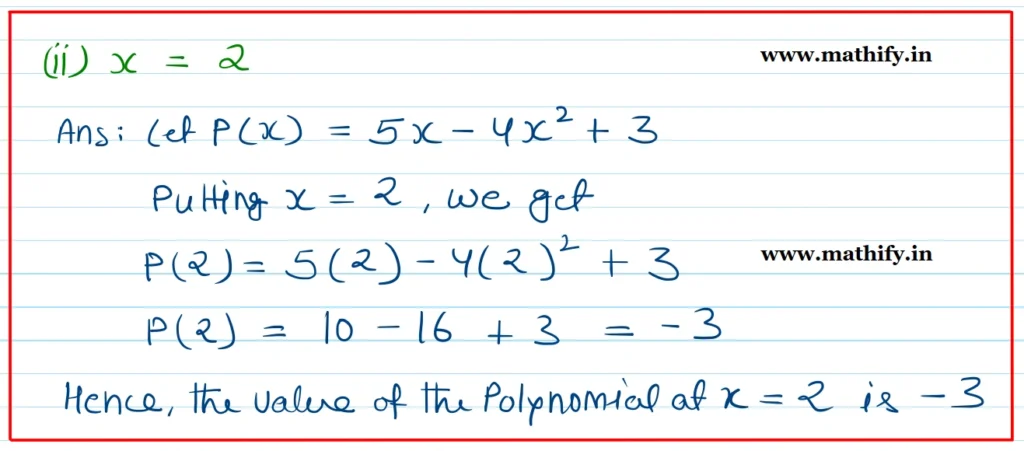 (ii) x = 2
www.mathify.in
Ans: Let P(x) = 5x - 4x² + 3
Putting x = 2, we get
P(2) = 5(2) - 4(2)² + 3
www.mathify.in
P(2) = 10 - 16 + 3 = -3
Hence, the value of the Polynomial at x = 2 is -3